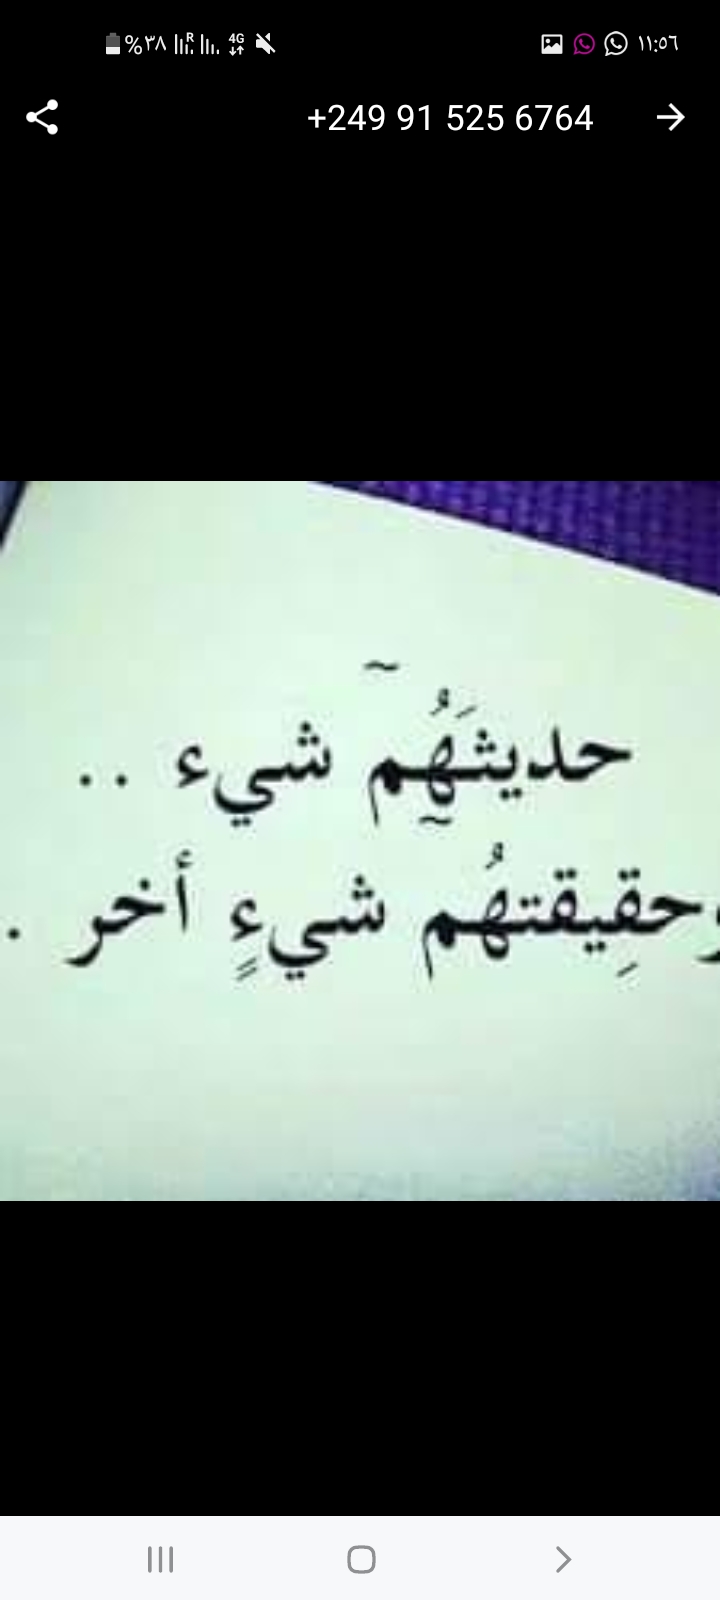 ١١:٥٦ 4G %٣٨
+249 91 525 6764
حديثَهُم شيء ..
وحقِيقتهُم شيءٍ أخر .